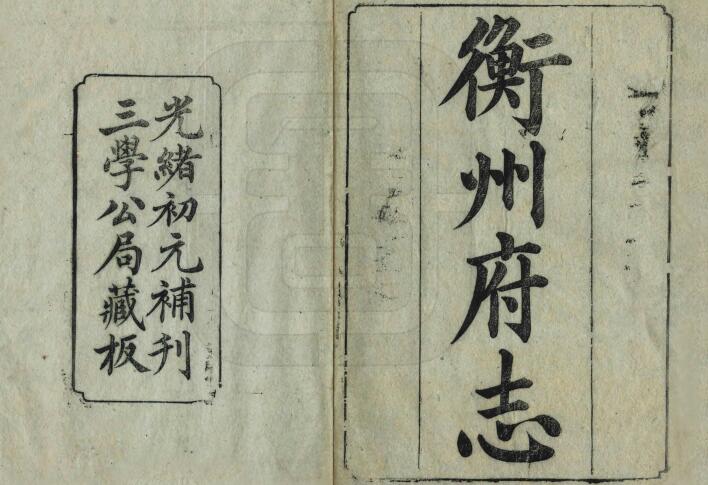 衡州府志
光緒初元補刋
三學公局藏板